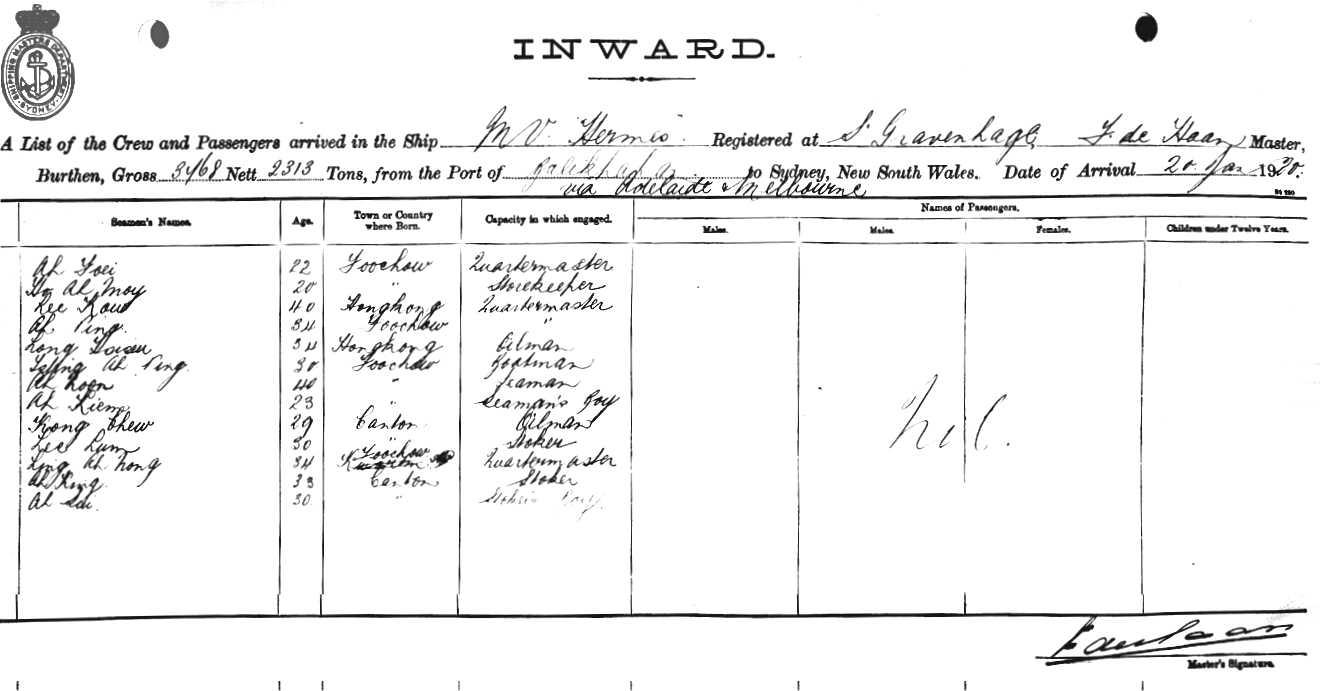 SHIPPING MASTERS DEPARTMENT SYDNEY
INWARD.
A List of the Crew and Passengers arrived in the Ship M V. Hermes. Registered at S' Gravenhage F. de Haan Master,
Burthen, Gross 3468 Nett 2313 Tons, from the Port of to Sydney, New South Wales. Date of Arrival 20. Jan 1920.
via Adelaide & Melbourne
Names of Passengers.
Seamen's Names. Age. Town or Country where Born. Capacity in which engaged. Males. Males. Females. Children under Twelve Years.
Ah 22 Foochow Quartermaster
Ah Moy 20 " Storekeeper
Lee Kow 40 Hongkong Quartermaster
Ah Ping. 34 Foochow "
Long 34 Hongkong Oilman
Ah Ping. 30 Foochow Boatman
Ah 40 " Seaman
Ah Kiem 23 " Seaman's Boy
Kong Chew 29 Canton Oilman
Lee Lum 30 " Stoker
Ling Ah Long 34 Foochow Quartermaster
Ah King. 33 Canton Stoker
Ah 30 " Boy.
Nil.
Master's Signature.